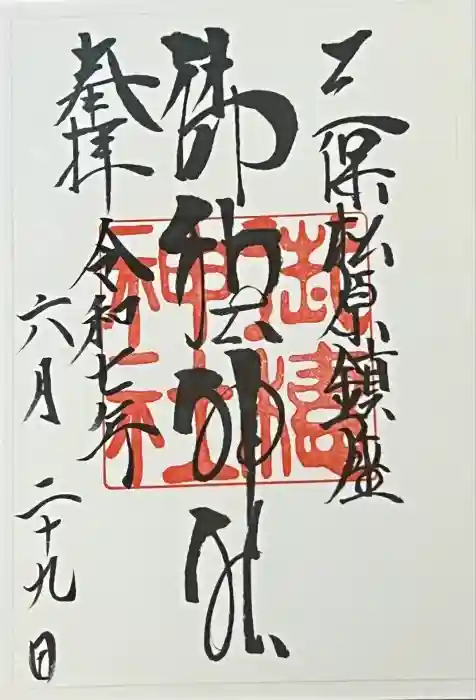 三保松原鎮座
御穂神社
奉拝
令和七年
六月二十九日
御穂
神社